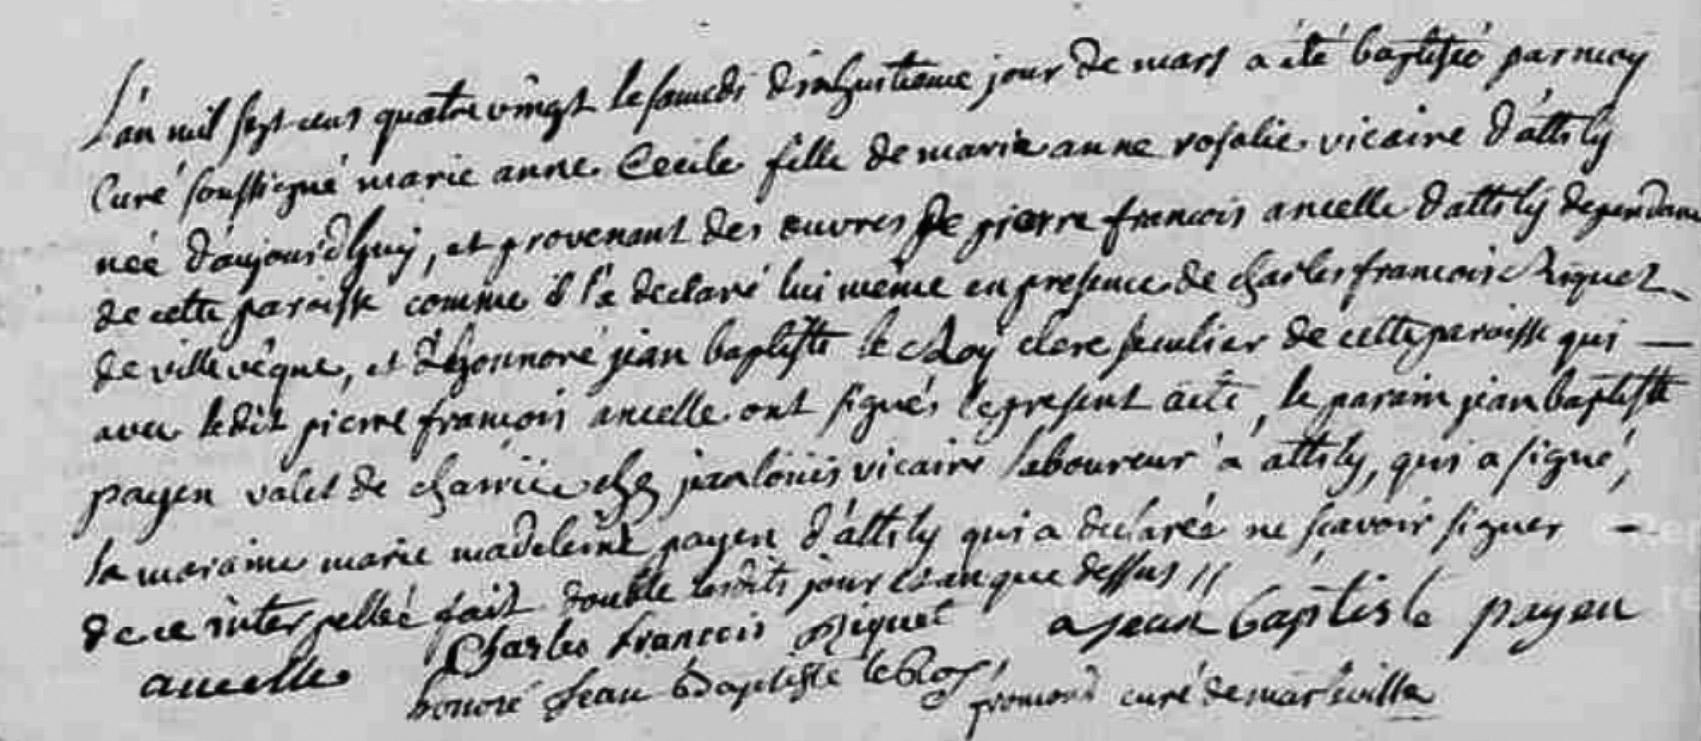 L'an mil sept cens quatre vingt le samedi dixhuitieme jour de mars a été baptisée par moy
Curé soussigné marie anne Cecile fille de marie anne rosalie vicaire d'attily
née d'aujourd'huy, et provenant des œuvres de pierre francois ancelle d'attily dependance
de cette paroisse comme il l'a declaré lui même en presence de charles francois Riquet
de villevêque, et d'honnoré jean baptiste le Roy clerc seculier de cette paroisse qui —
avec ledit pierre françois ancelle ont signés le present acte, le parain jean baptiste
payen valet de charrüe chez jean loüis vicaire laboureur a attily, qui a signé,
la maraine marie madeleine payen d'attily qui a declarée ne scavoir signer —
de ce interpellée fait double lesdits jour et an que dessus //
Charles francois Riquet jean baptiste payen
ancelle
honoré Jean Baptiste le Roy fromond curé de marteville